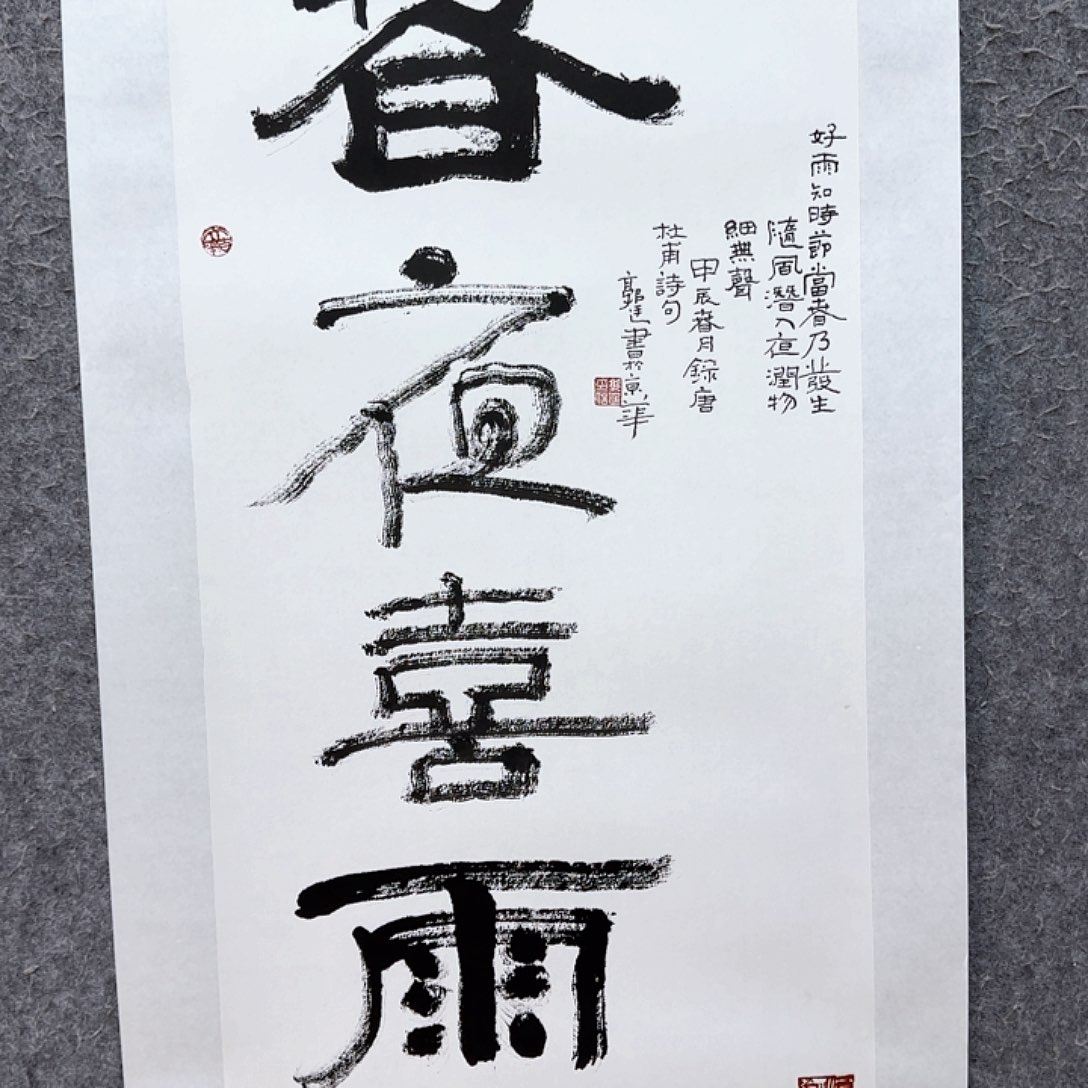 春夜喜雨
好雨知時節當春乃發生
隨風潛入夜潤物
細無聲
甲辰春月錄唐
杜甫詩句
書於京華